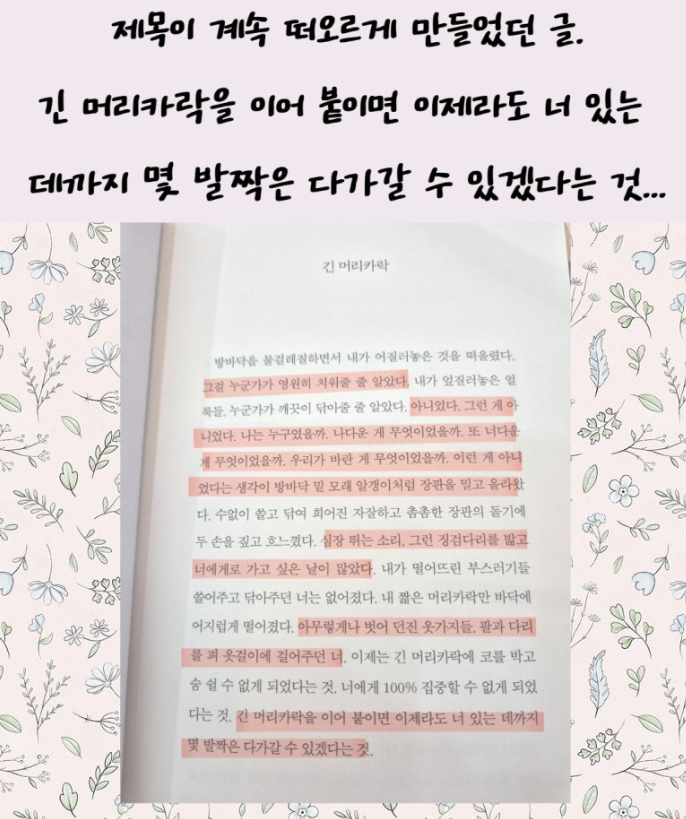 제목이 계속 떠오르게 만들었던 글.
긴 머리카락을 이어 붙이면 이제라도 너 있는
데까지 몇 발짝은 다가갈 수 있겠다는 것...
긴 머리카락
방바닥을 물걸레질하면서 내가 어질러놓은 것을 떠올렸다.
그걸 누군가가 영원히 치워줄 줄 알았다. 내가 엎질러놓은 얼
룩들. 누군가가 깨끗이 닦아줄 줄 알았다. 아니었다. 그런 게 아
니었다. 나는 누구였을까. 나다운 게 무엇이었을까. 또 너다운
게 무엇이었을까. 우리가 바란 게 무엇이었을까. 이런 게 아니
었다는 생각이 방바닥 밑 모래 알갱이처럼 장판을 밀고 올라왔
다. 수없이 쓸고 닦여 희어진 자잘하고 촘촘한 장판의 돌기에
두 손을 짚고 흐느꼈다. 심장 뛰는 소리, 그런 징검다리를 밟고
너에게로 가고 싶은 날이 많았다. 내가 떨어뜨린 부스러기들
쓸어주고 닦아주던 너는 없어졌다. 내 짧은 머리카락만 바닥에
어지럽게 떨어졌다. 아무렇게나 벗어 던진 옷가지들, 팔과 다리
를 펴 옷걸이에 걸어주던 너. 이제는 긴 머리카락에 코를 박고
숨 쉴 수 없게 되었다는 것. 너에게 100% 집중할 수 없게 되었
다는 것. 긴 머리카락을 이어 붙이면 이제라도 너 있는 데까지
몇 발짝은 다가갈 수 있겠다는 것.